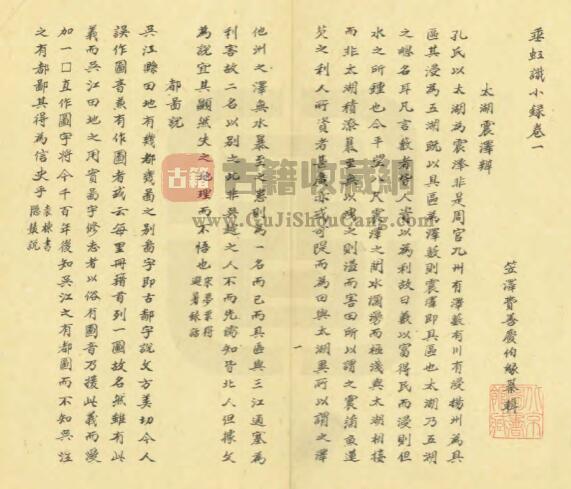 垂虹識小錄卷一
笠澤費善慶伯緣纂輯
太湖震澤辨
孔氏以太湖為震澤非是周官九州有澤藪有川有浸揚州為具
區其浸為五湖既以具區為澤藪則震澤即具區也太湖乃五湖
之總名耳凡言藪者皆人資以為利故曰藪以富得民而浸則但
水之所鍾也今平望八尺震澤之間水瀰漫而極淺與太湖相接
而非太湖積潦暴至無以洩之則溢而害田所以謂之震澤魚蓮
芡之利人所資者甚廣亦或可隄而為田與太湖異所以謂之澤
他州之澤無水暴至之患則為一名而已而具區與三江通塞為
利害故二名以別之此非吳越之人不而先儒知皆北人但據文
為說宜其顯然失之地理而不悟也 葉夢得
避暑錄話
都啚説
吳江縣田地有幾都幾啚之别啚字即古鄙字説文方美切今人
誤作圖音兼有作圖者或云每里冊籍首列一圖故名然雖有此
義而吳江田地之用實啚字修志者以俗有圖音乃援此義而漫
加一口直作圖字將令千百年後知吳江之有都圖而不知吳江
之有都鄙其得為信史乎 袁棟書
隱叢説
古籍
古籍收藏網
www.GuJiShouCang.com